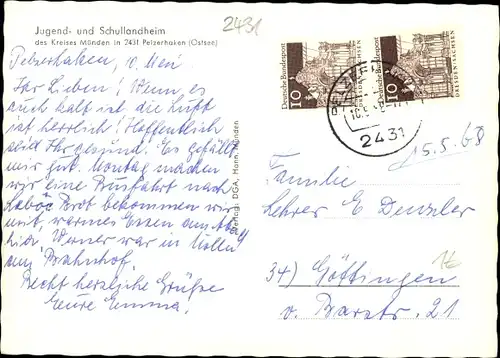 2431
Jugend- und Schullandheim
des Kreises Münden in 2431 Pelzerhaken (Ostsee)
Pelzerhaken, d.
Ihr Lieben! Wenn es
auch kalt ist die Luft
ist herrlich! Hoffentlich
seid Ihr gesund. Es gefällt
mir gut. Montag machen
wir eine Busfahrt nach
Laboe Brot bekommen wir
mit, warmes Essen am
hier. Werner war in
am Bahnhof.
Recht herzliche Grüße
Eure Emma.
Verlag: DGA, Hann. Münden
Deutsche Bundespost
10
DRESDEN-SACHSEN
Deutsche Bundespost
10
DRESDEN-SACHSEN
2431
15.5.68
Familie
Lehrer E Denzler
34) Göttingen
v. Barstr. 21